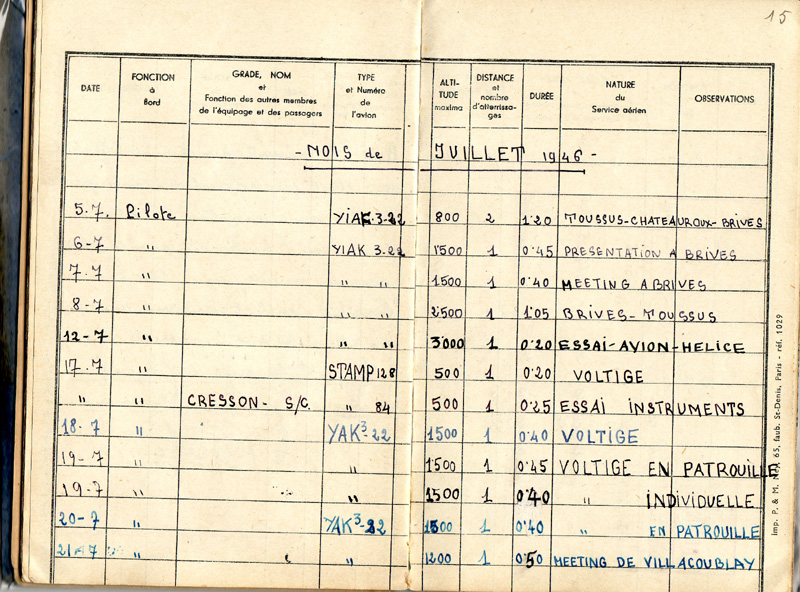 15
DATE FONCTION à Bord GRADE, NOM et Fonction des autres membres de l'équipage et des passagers TYPE et Numéro de l'avion ALTITUDE maxima DISTANCE et nombre d'atterrissages DURÉE NATURE du Service aérien OBSERVATIONS
- MOIS de JUILLET 1946 -
5-7. Pilote YIAK-3-22 800 2 1·20 TOUSSUS-CHATEAUROUX-BRIVES
6-7 " YIAK 3-22 1500 1 0·45 PRESENTATION A BRIVES
7-7 " " " 1500 1 0·40 MEETING A BRIVES
8-7 " " " 2500 1 1·05 BRIVES-TOUSSUS
12-7 " " " 3000 1 0·20 ESSAI-AVION-HELICE
17-7 " STAMP 128 500 1 0·20 VOLTIGE
" " CRESSON- S/C. " 84 500 1 0·25 ESSAI INSTRUMENTS
18-7 " YAK3-22 1500 1 0·40 VOLTIGE
19-7 " " 1500 1 0·45 VOLTIGE EN PATROUILLE
19-7 " " 1500 1 0·40 " INDIVIDUELLE
20-7 " YAK3-22 1500 1 0·40 " EN PATROUILLE
21-7 " " 1200 1 0·50 MEETING DE VILLACOUBLAY
Imp. P. & M. 65, faub. St-Denis, Paris - réf. 1029